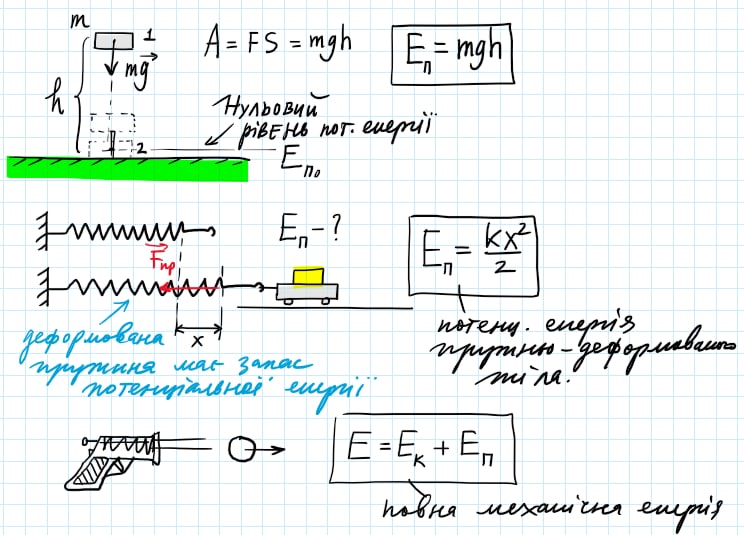 m
1
mg
h
A = FS = mgh
Eп = mgh
Нульовий
рівень пот. енергії
2
Eп₀
Eп - ?
Fпр
x
Eп = kx²/2
деформована
пружина має запас
потенціальної енергії
потенц. енергія
пружньо-деформованого
тіла.
E = Eк + Eп
повна механічна енергія